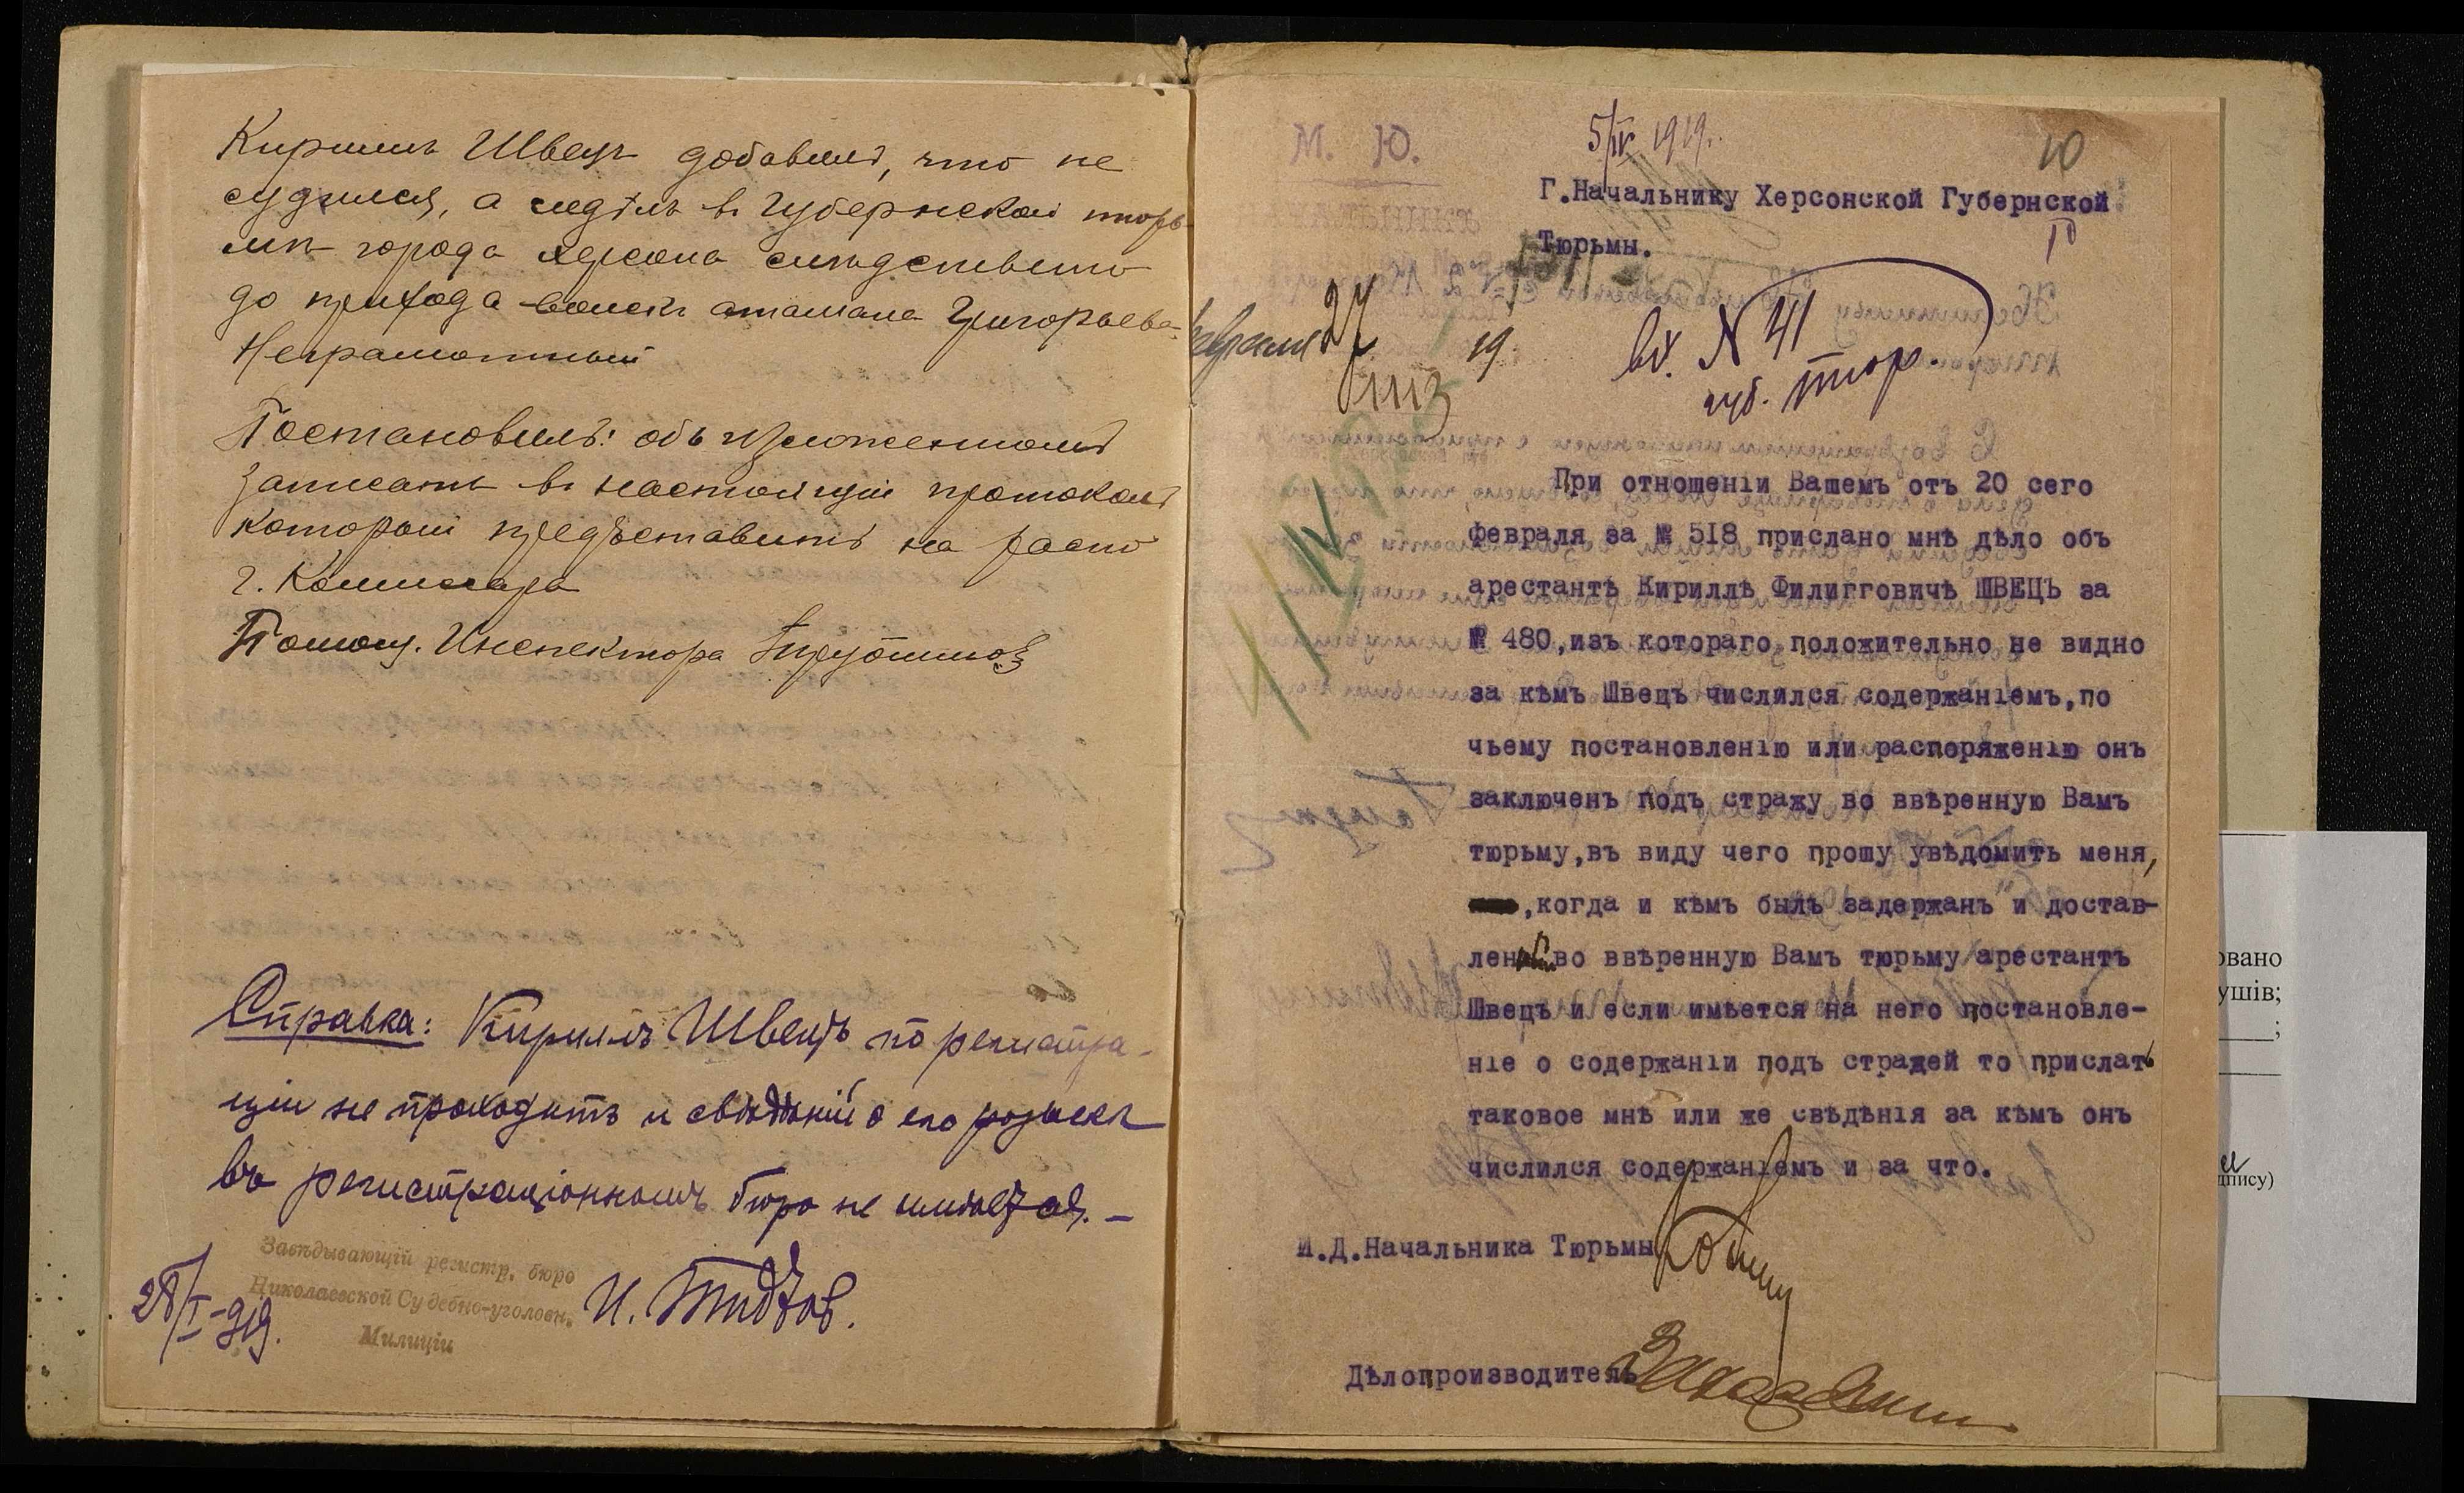 Кирилъ Швецъ добавилъ, что не
судился, а сидѣлъ въ Губернской тюрь
мѣ города Херсона слѣдственно
до прихода войскъ атамана Григорьева
Неграмотный
Постановилъ: объ изложенномъ
записать въ настоящій протоколъ
который предъставить на расп
г. Комиссара
Помощ. Инспектора
Справка: Кирилъ Швецъ по регистра-
ціи не проходитъ и свѣдѣній о его розыскѣ
въ регистраціонномъ бюро не имѣется. –
Завѣдывающій регистр. бюро
Николаевской Судебно-уголовн.
Милиціи
28/I-919.
М. Ю.
5/IV 1919.
10
Г.Начальнику Херсонской Губернской
Тюрьмы.
февраля 27 19
1113
вх. № 41
губ. тюр.
При отношеніи Вашемъ отъ 20 сего
февраля за № 518 прислано мнѣ дѣло объ
арестантѣ Кириллѣ Филигговичѣ ШВЕЦЪ за
№ 480,изъ котораго положительно не видно
за кѣмъ Швецъ числился содержаніемъ,по
чьему постановленію или распоряженію онъ
заключенъ подъ стражу во ввѣренную Вамъ
тюрьму,въ виду чего прошу увѣдомить меня,
,когда и кѣмъ былъ задержанъ и достав-
ленъ во ввѣренную Вамъ тюрьму арестантъ
Швецъ и если имѣется на него постановле-
ніе о содержаніи подъ стражей то прислать
таковое мнѣ или же свѣдѣнія за кѣмъ онъ
числился содержаніемъ и за что.
И.Д.Начальника Тюрьмы
Дѣлопроизводитель
овано
ушів;
дпису)